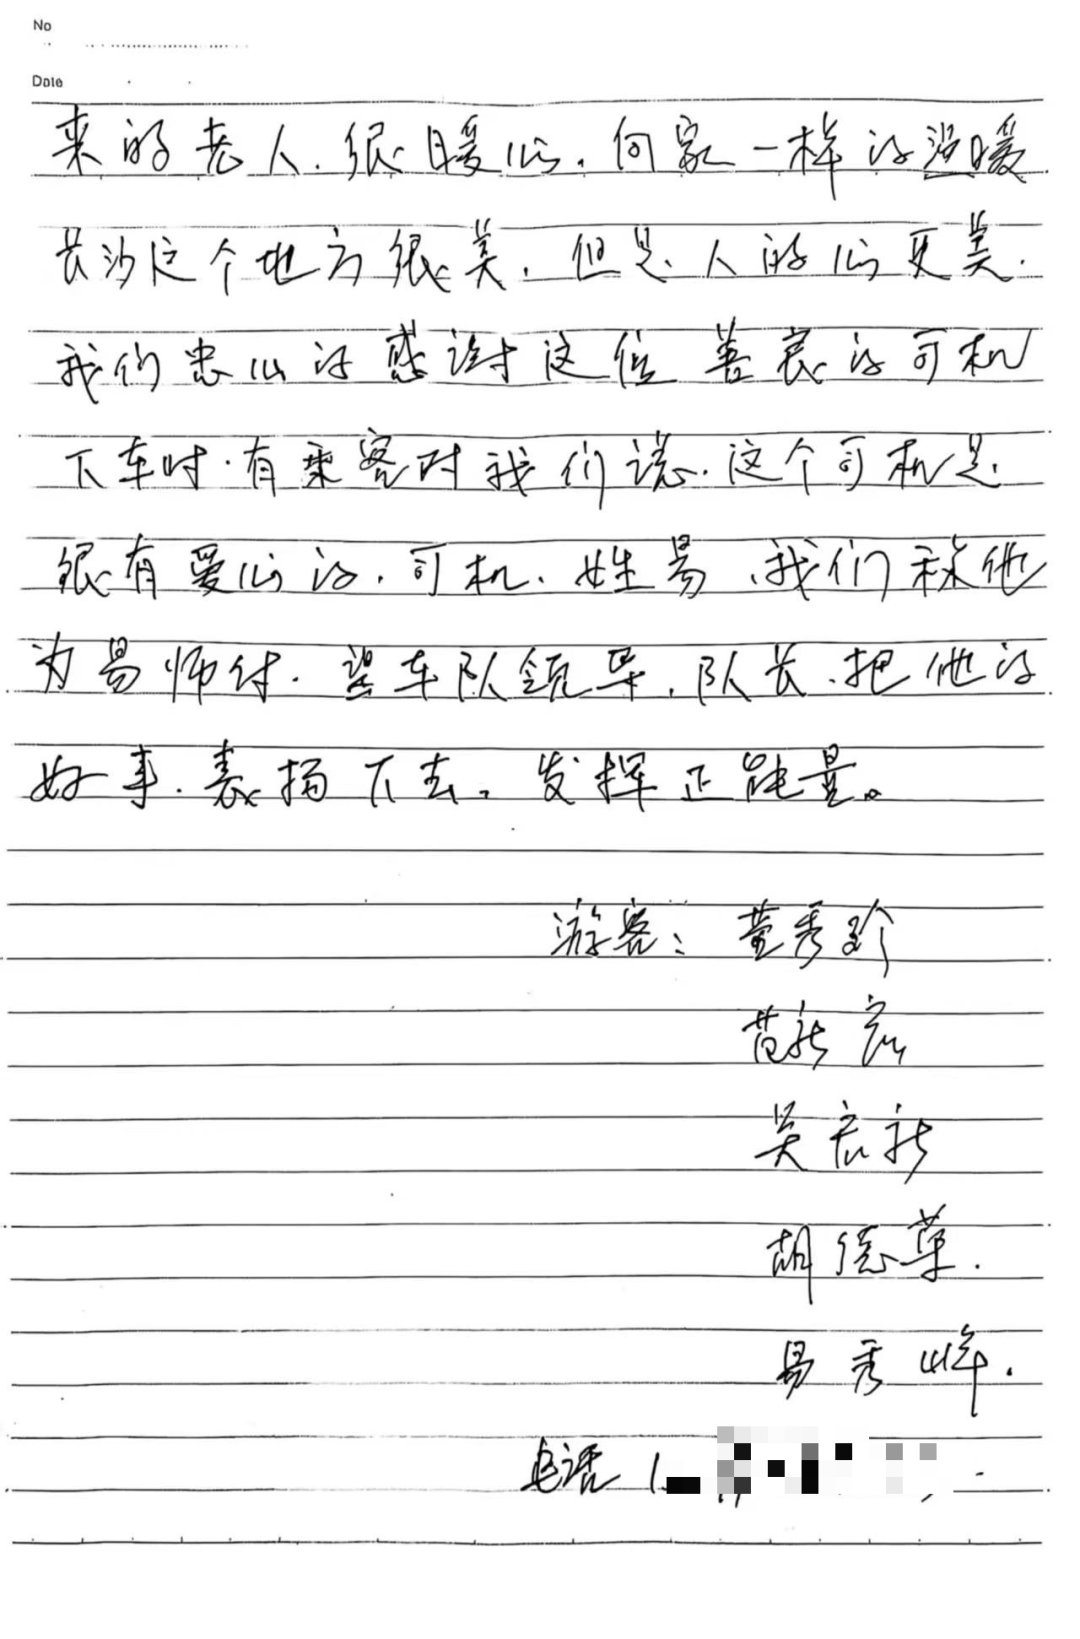 No
Date
来的老人.很暖心.向家一样的温暖
长沙这个地方很美.但是.人的心更美.
我们忠心的感谢这位善良的司机
下车时.有乘客对我们说.这个司机是.
很有爱心的.司机.姓易.我们称他
为易师付.望车队领导.队长.把他的
好事.表扬下去.发挥正能量。
游客:董秀珍
吴宏新
胡德草.
易秀峰.
电话1